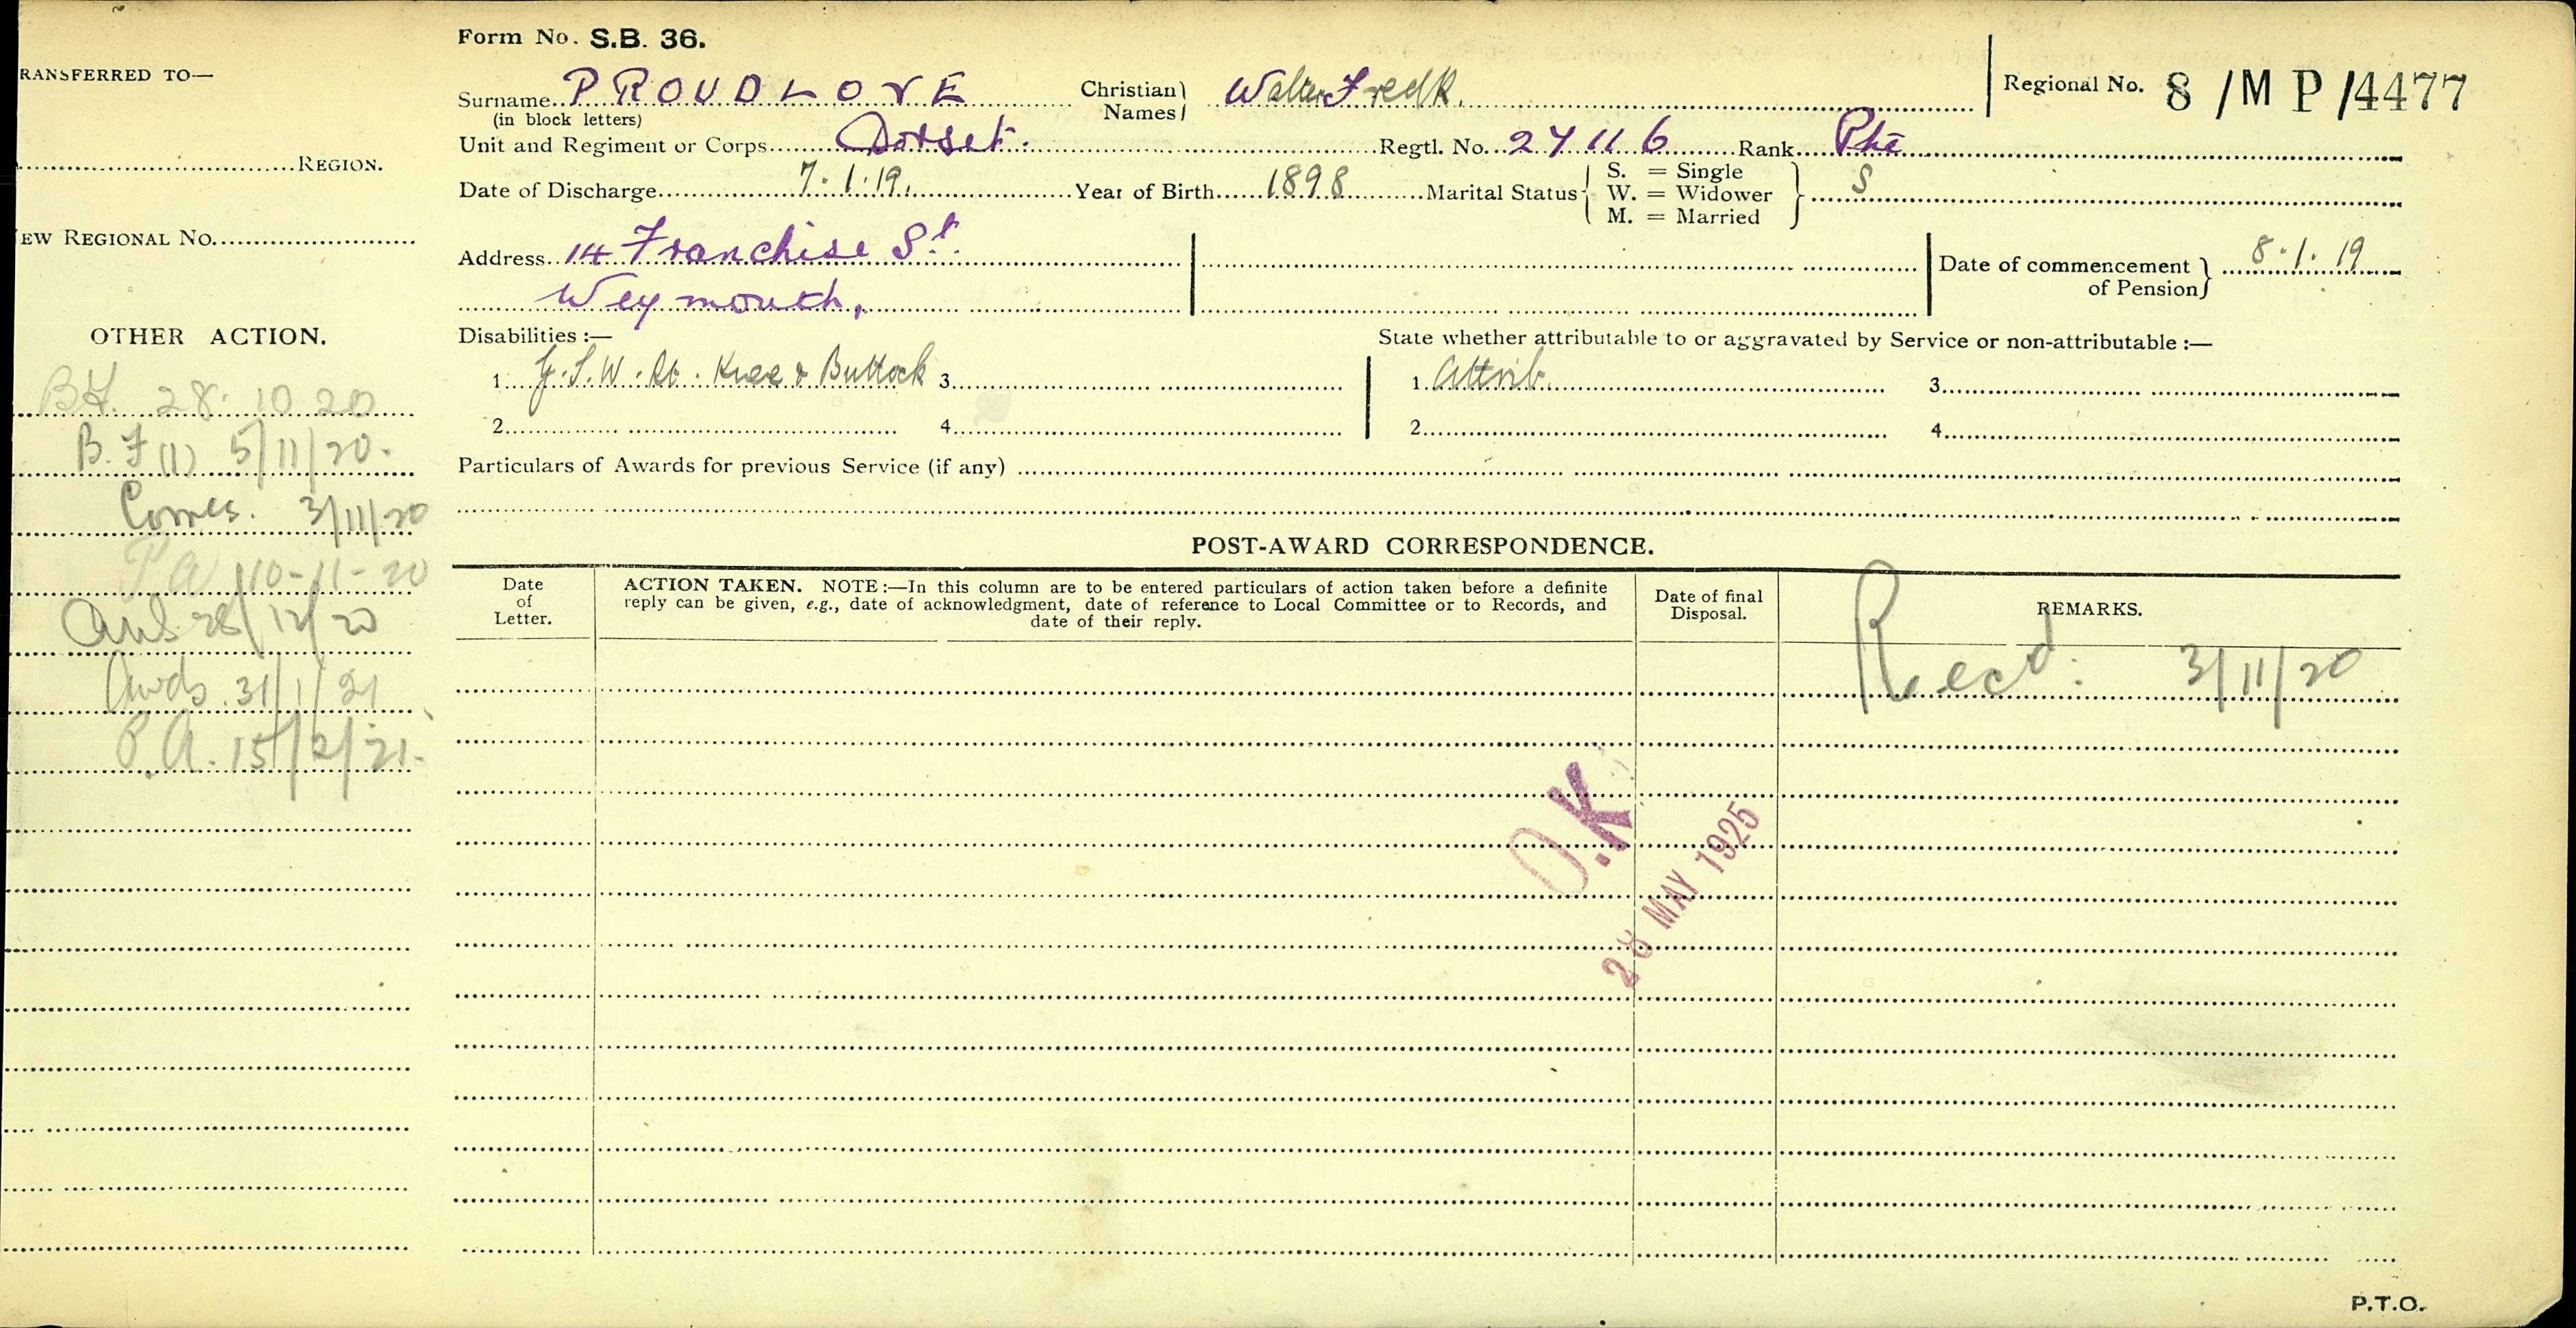 RANSFERRED TO—
REGION.
EW REGIONAL NO.
OTHER ACTION.
B.F. 28.10.20
B.F (1) 5/11/20.
Corres. 3/11/20
P A 10-11-20
28/12/20
Awds. 31/1/21
P.A. 15/2/21.
Form No. S.B. 36.
Surname PROUDLOVE Christian Names Walter Fredk. Regional No. 8 /M P /4477
(in block letters)
Unit and Regiment or Corps Dorset. Regtl. No. 27116 Rank Pte
Date of Discharge 7.1.19. Year of Birth 1898 Marital Status S. = Single W. = Widower M. = Married S
Address 14 Franchise St. Date of commencement of Pension 8.1.19
Weymouth.
Disabilities :— State whether attributable to or aggravated by Service or non-attributable :—
1. G.S.W. Rt. Knee & Buttock 3. 1. Attrib. 3.
2. 4. 2. 4.
Particulars of Awards for previous Service (if any)
POST-AWARD CORRESPONDENCE.
Date of Letter.
ACTION TAKEN. NOTE :—In this column are to be entered particulars of action taken before a definite
reply can be given, e.g., date of acknowledgment, date of reference to Local Committee or to Records, and
date of their reply.
Date of final Disposal.
REMARKS.
Recd. 3/11/20
O.K
28 MAY 1925
P.T.O.